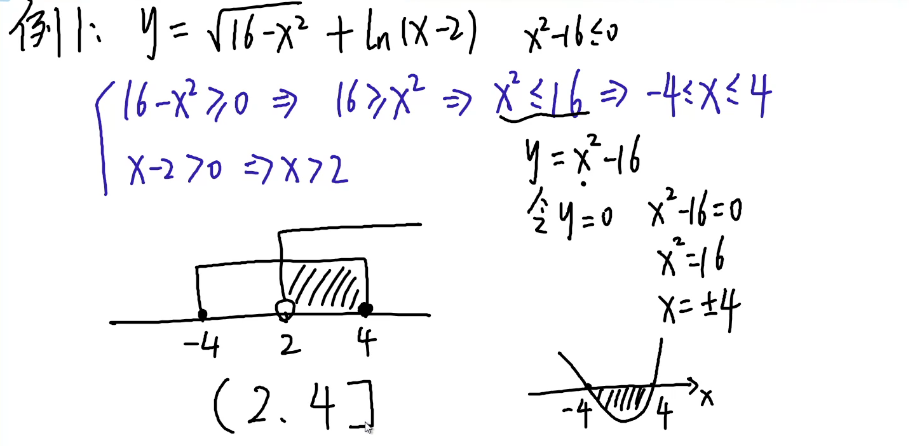 例1: y = √(16-x²) + ln(x-2) x²-16≤0
16-x²≥0 ⇒ 16≥x² ⇒ x²≤16 ⇒ -4≤x≤4
x-2>0 ⇒ x>2
y = x²-16
令y=0 x²-16=0
x²=16
x=±4
-4 2 4
(2.4]
-4 4 x